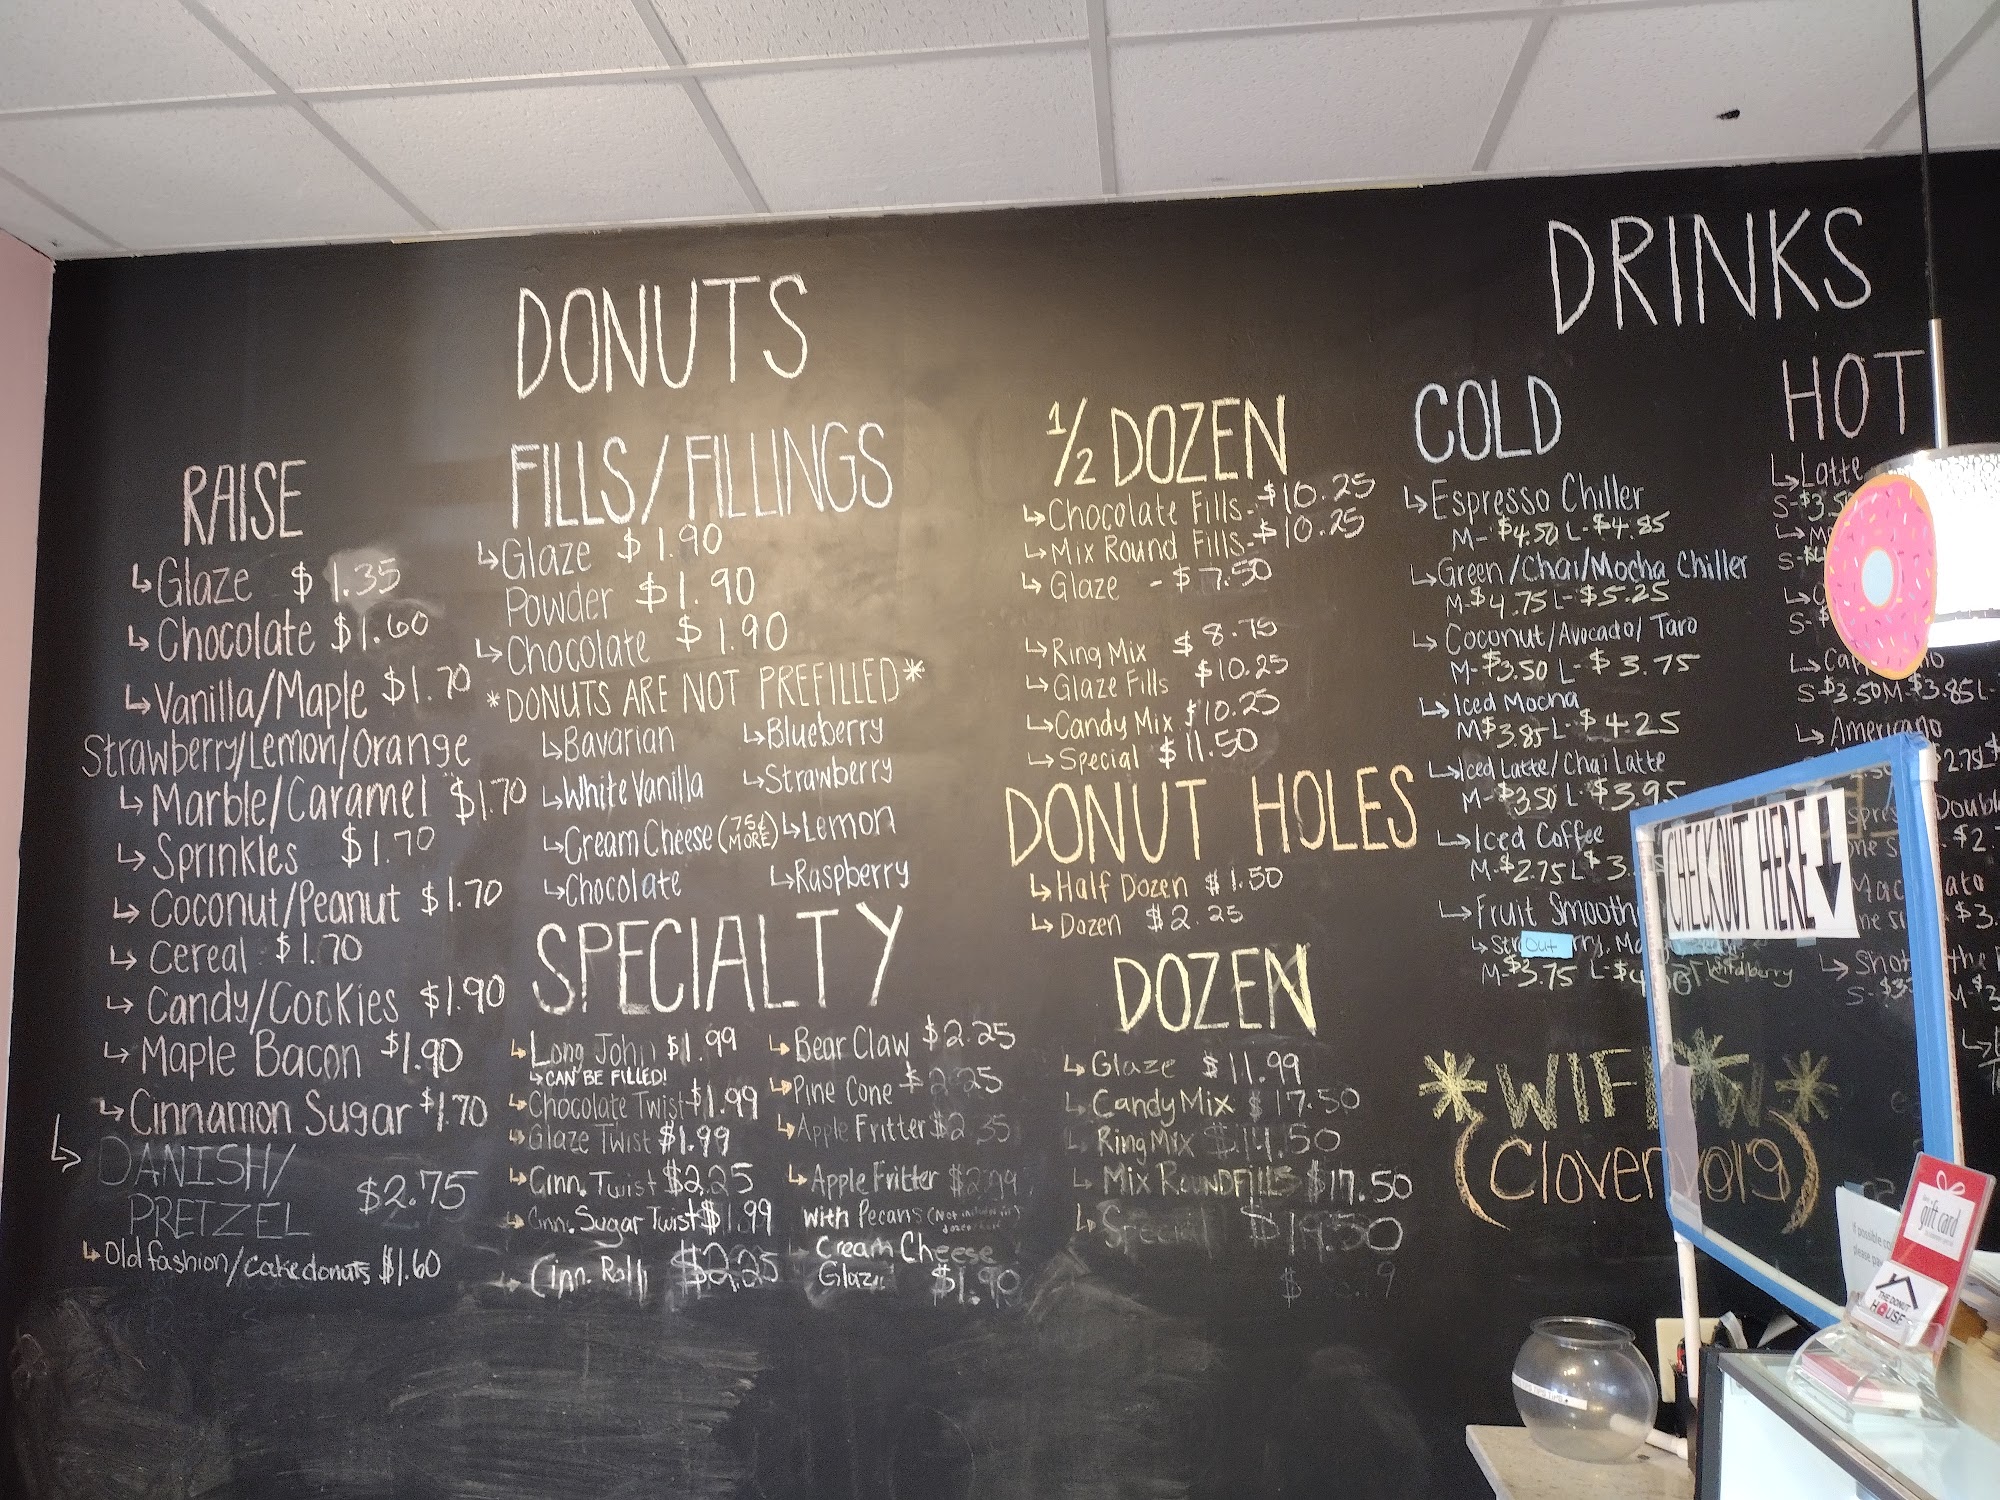 DONUTS
RAISE
↳Glaze $1.35
↳Chocolate $1.60
↳Vanilla/Maple $1.70
Strawberry/Lemon/Orange
↳Marble/Caramel $1.70
↳Sprinkles $1.70
↳Coconut/Peanut $1.70
↳Cereal $1.70
↳Candy/Cookies $1.90
↳Maple Bacon $1.90
↳Cinnamon Sugar $1.70
↳DANISH/
PRETZEL $2.75
↳Old fashion/cake donuts $1.60
FILLS/FILLINGS
↳Glaze $1.90
Powder $1.90
↳Chocolate $1.90
*DONUTS ARE NOT PREFILLED*
↳Bavarian
↳White Vanilla
↳Cream Cheese (75¢ MORE)
↳Chocolate
↳Blueberry
↳Strawberry
↳Lemon
↳Raspberry
SPECIALTY
↳Long John $1.99
↳CAN BE FILLED!
↳Chocolate Twist $1.99
↳Glaze Twist $1.99
↳Cinn. Twist $2.25
↳Cinn. Sugar Twist $1.99
↳Cinn. Roll $2.25
↳Bear Claw $2.25
↳Pine Cone $2.25
↳Apple Fritter $2.35
↳Apple Fritter $2.99
With Pecans
Cream Cheese
Glaze $1.90
1/2 DOZEN
↳Chocolate Fills-$10.25
↳Mix Round Fills-$10.25
↳Glaze -$7.50
↳Ring Mix $8.75
↳Glaze Fills $10.25
↳Candy Mix $10.25
↳Special $11.50
DONUT HOLES
↳Half Dozen $1.50
↳Dozen $2.25
DOZEN
↳Glaze $11.99
↳Candy Mix $17.50
↳Ring Mix $14.50
↳Mix Round Fills $17.50
↳Special $19.50
DRINKS
COLD
↳Espresso Chiller
M-$4.50 L-$4.85
↳Green/Chai/Mocha Chiller
M-$4.75 L-$5.25
↳Coconut/Avocado/Taro
M-$3.50 L-$3.75
↳Iced Mocha
M$3.85 L-$4.25
↳Iced Latte/Chai Latte
M-$3.50 L-$3.95
↳Iced Coffee
M-$2.75 L-$3.
↳Fruit
Out
M-$3.75 L-$4
Wildberry
HOT
↳Latte
S-$3.50
S-$4
S-$
S-$3.50 M-$3.85 L-
↳Americano
$2.75
↳Shot the
*WIFI*
(Clover
CHECKOUT HERE ↓
gift card
If possible
please
THE DONUT
HOUSE